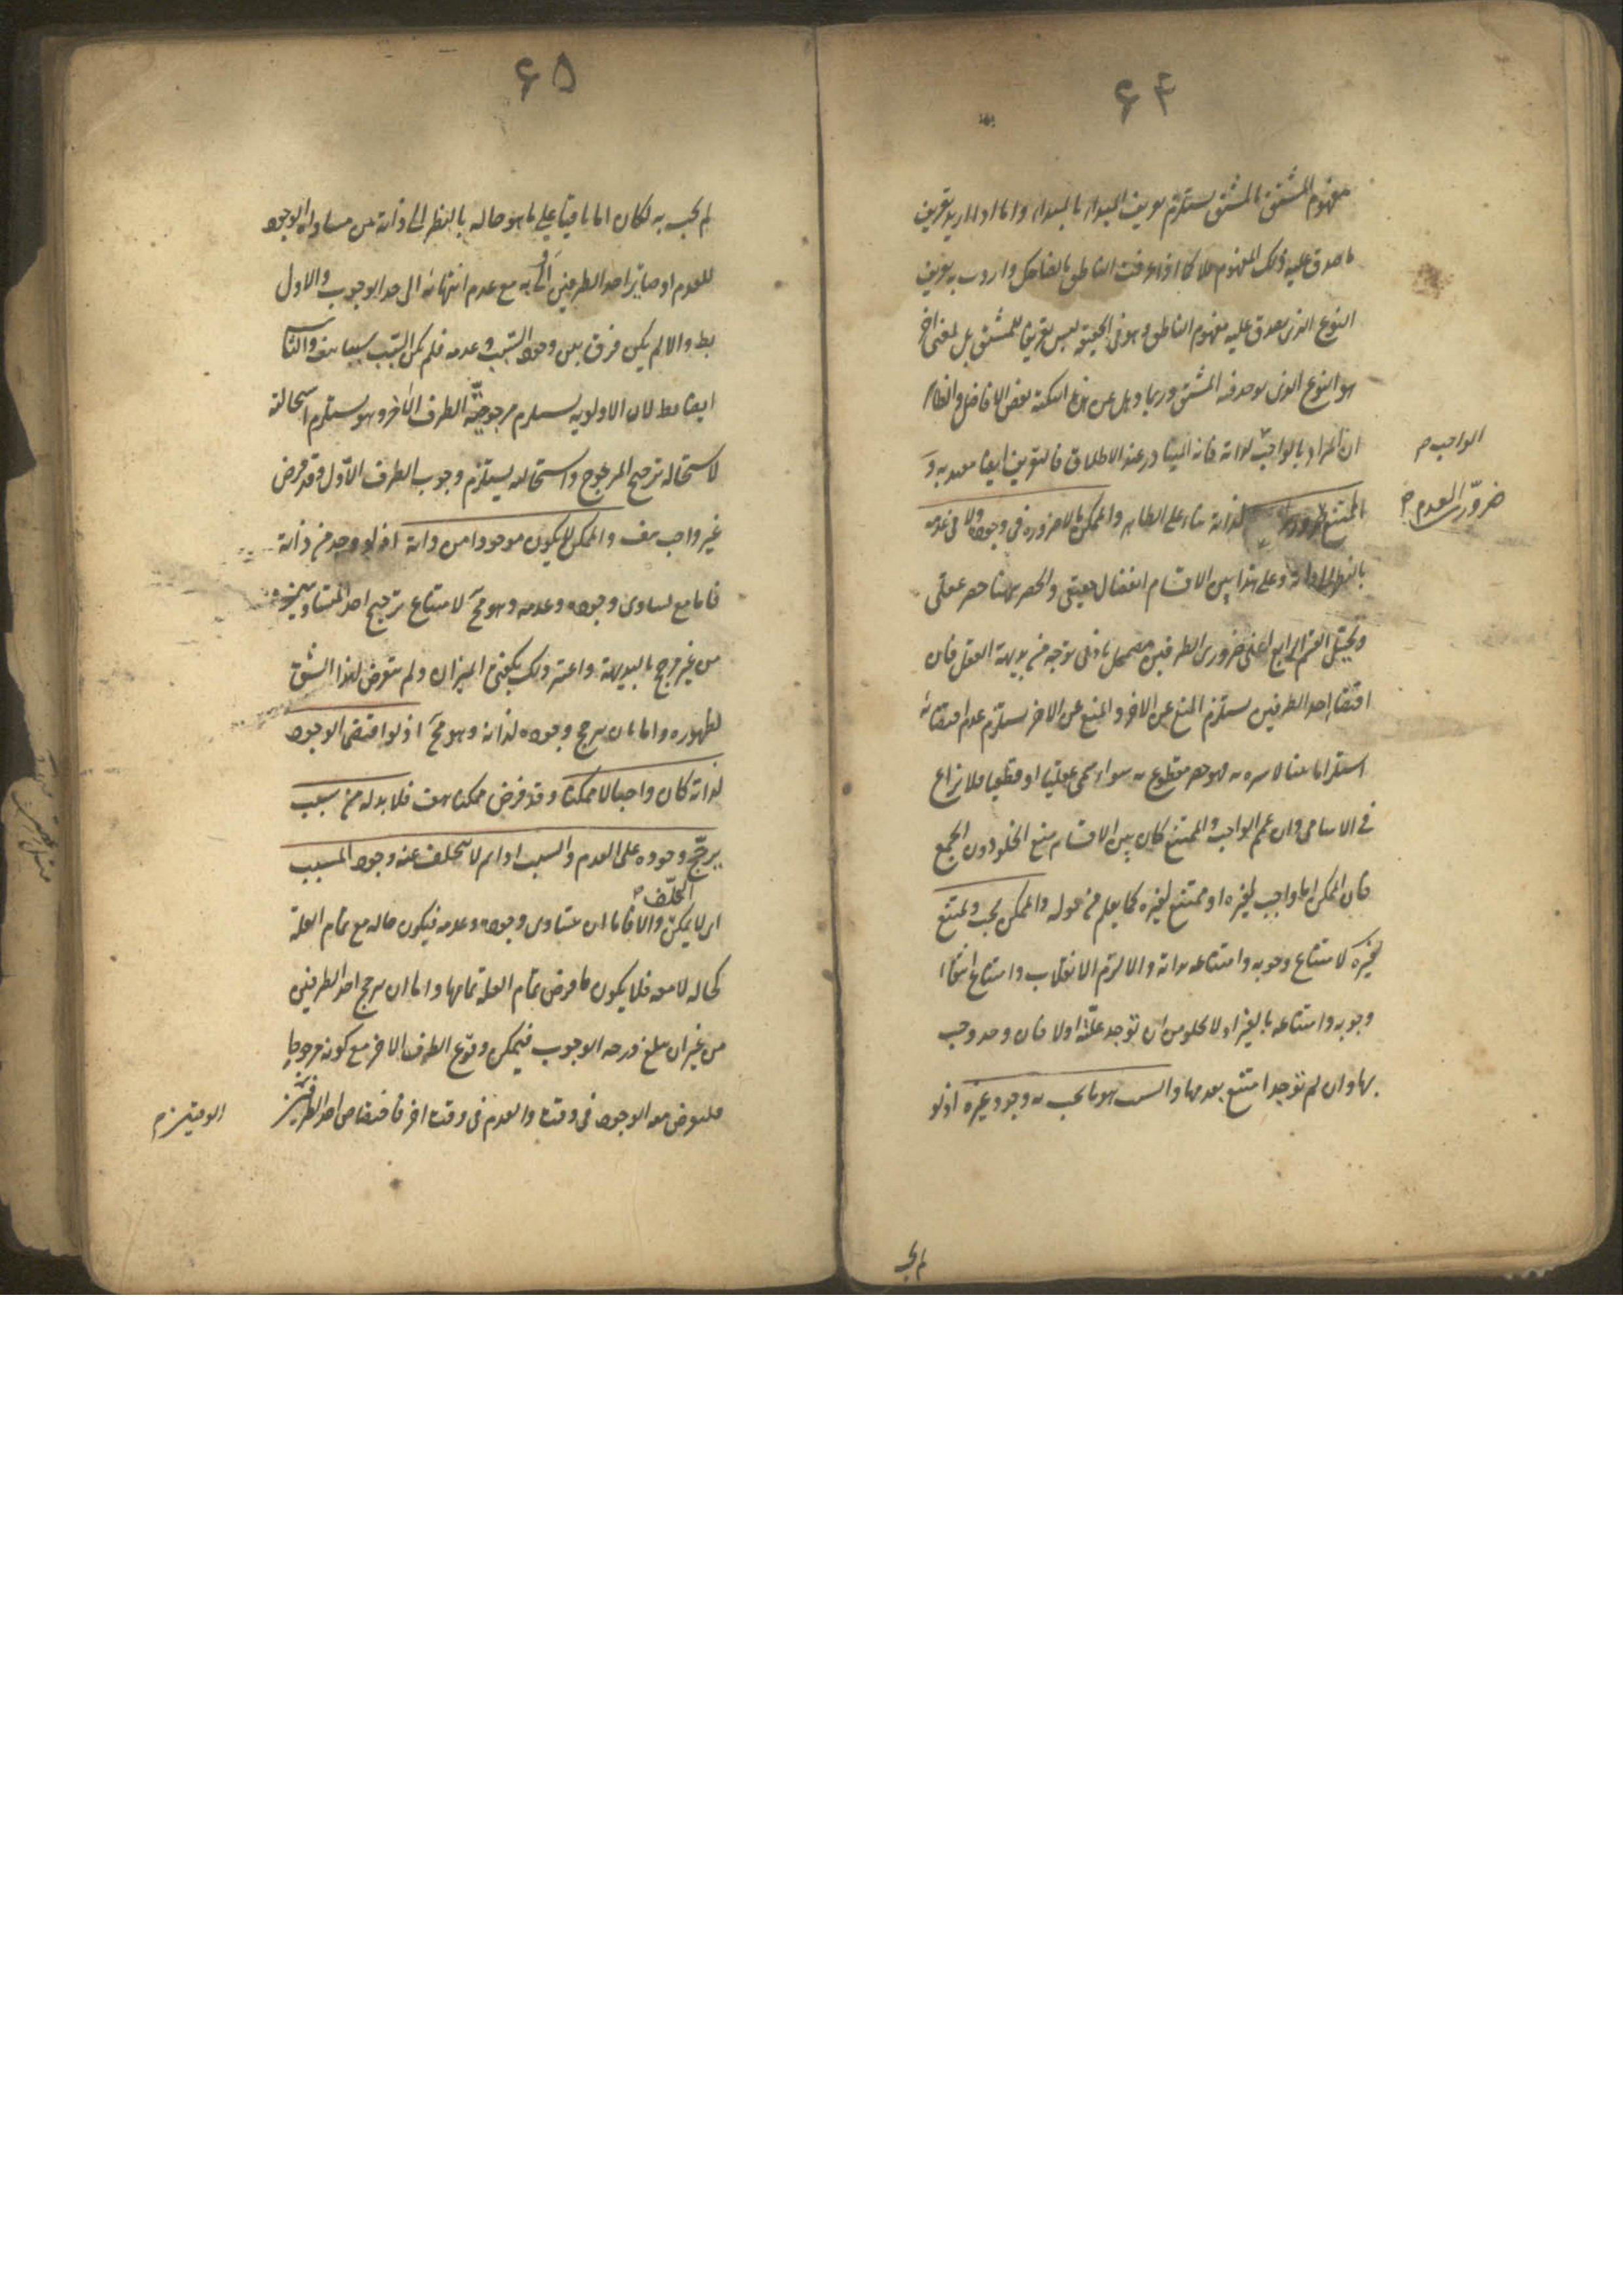 ۶۴
مفهوم المشتق بالمشتق يستلزم تعريف المبداء بالمبداء واما اذا اريد تعريف
ما صدق عليه ذلك المفهوم فلا كما اذا عرفت الناطق بالضاحك واردت به تعريف
النوع الذى يصدق عليه مفهوم الناطق وهو فى الحقيقة ليس تعريفا للمشتق بل لمعنى اخر
هو النوع الذى يوجد فيه المشتق وربما عن هذه النكتة بعض الافاضل والظاهر
ان المراد بالواجب لذاته فانه المتبادر عند الاطلاق فالتعريف ايضا مقيد به و
الواجب م
الممتنع ضرورى لذاته بناء على الظاهر والممكن بالاضرورة فى وجوده ولا فى عدمه
ضرورى العدم م
بالنظر الى ذاته وعلى هذا بين الاقسام انفصال حقيقى والحصر ههنا حصر عقلى
وتخيل القسم الرابع اعنى ضرورى الطرفين مضمحل بادنى توجه من بديهة العقل فان
اقتضاء احد الطرفين يستلزم المنع عن الاخر والمنع عن الاخر يستلزم عدم اقتضائه
استلزاما بينا لا سترة به فهو حصر مقطوع به سواء سمى عقليا او قطعيا فلا نزاع
فى الاسامى وان عمم الواجب والممتنع كان بين الاقسام منع الخلو دون الجمع
فان الممكن اما واجب لغيره او ممتنع لغيره كما يعلم من قوله والممكن يجب ويمتنع
لغيره لامتناع وجوبه وامتناعه بذاته والا لزم الانقلاب وامتناع انتفاء
وجوبه وامتناعه بالغير اذ لا يخلو من ان توجد علته اولا فان وجد وجب
بها وان لم توجد امتنع بعدمها والسبب هو ما يجب به وجود غيره اذ لو
لم يجب
۶۵
لم يجب به لكان اما باقيا على ما هو حاله بالنظر الى ذاته من مساواة الوجود
للعدم او صائرا احد الطرفين اولى به مع عدم انتهائه الى حد الوجوب والاول
بط والا لم يكن فرق بين وجود السبب وعدمه فلم يكن السبب سببا هف والثانى
ايضا بط لان الاولوية يستلزم مرجوحية الطرف الاخر وهو يستلزم استحالته
لاستحالة ترجيح المرجوح واستحالته يستلزم وجوب الطرف الاول وقد فرض
غير واجب هف والممكن لا يكون موجودا من ذاته اذ لو وجد من ذاته
فاما مع تساوى وجوده وعدمه وهو مح لامتناع ترجيح احد المتساويين
من غير مرجح بالبديهة واعتبر ذلك بكفتى الميزان ولم يتعرض لهذا الشق
لظهوره واما بان يرجح وجوده لذاته وهو مح اذ لو اقتضى الوجود
لذاته كان واجبا لا ممكنا وقد فرض ممكنا هف فلا بد له من سبب
يرجح وجوده على العدم والسبب اذا تم لا يتخلف عنه وجود المسبب
اى لا يمكن والا فاما ان يتساوى وجوده وعدمه فيكون حاله مع تمام العلة
التخلف م
كحاله لا معه فلا يكون ما فرض تمام العلة تمامها واما ان يرجح احد الطرفين
من غير ان يبلغ درجة الوجوب فيمكن وقوع الطرف الاخر مع كونه مرجوحا
فليفرض معه الوجود فى وقت والعدم فى وقت اخر فاختصاص احد الطرفين
الوقتين م